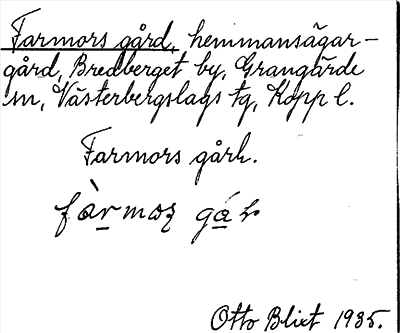 Farmors gård, hemmansägar-
gård, Bredberget by, Grangärde
sn, Västerbergslags tg, Kopp l.
Farmors gårk.
Otto Blixt 1935.